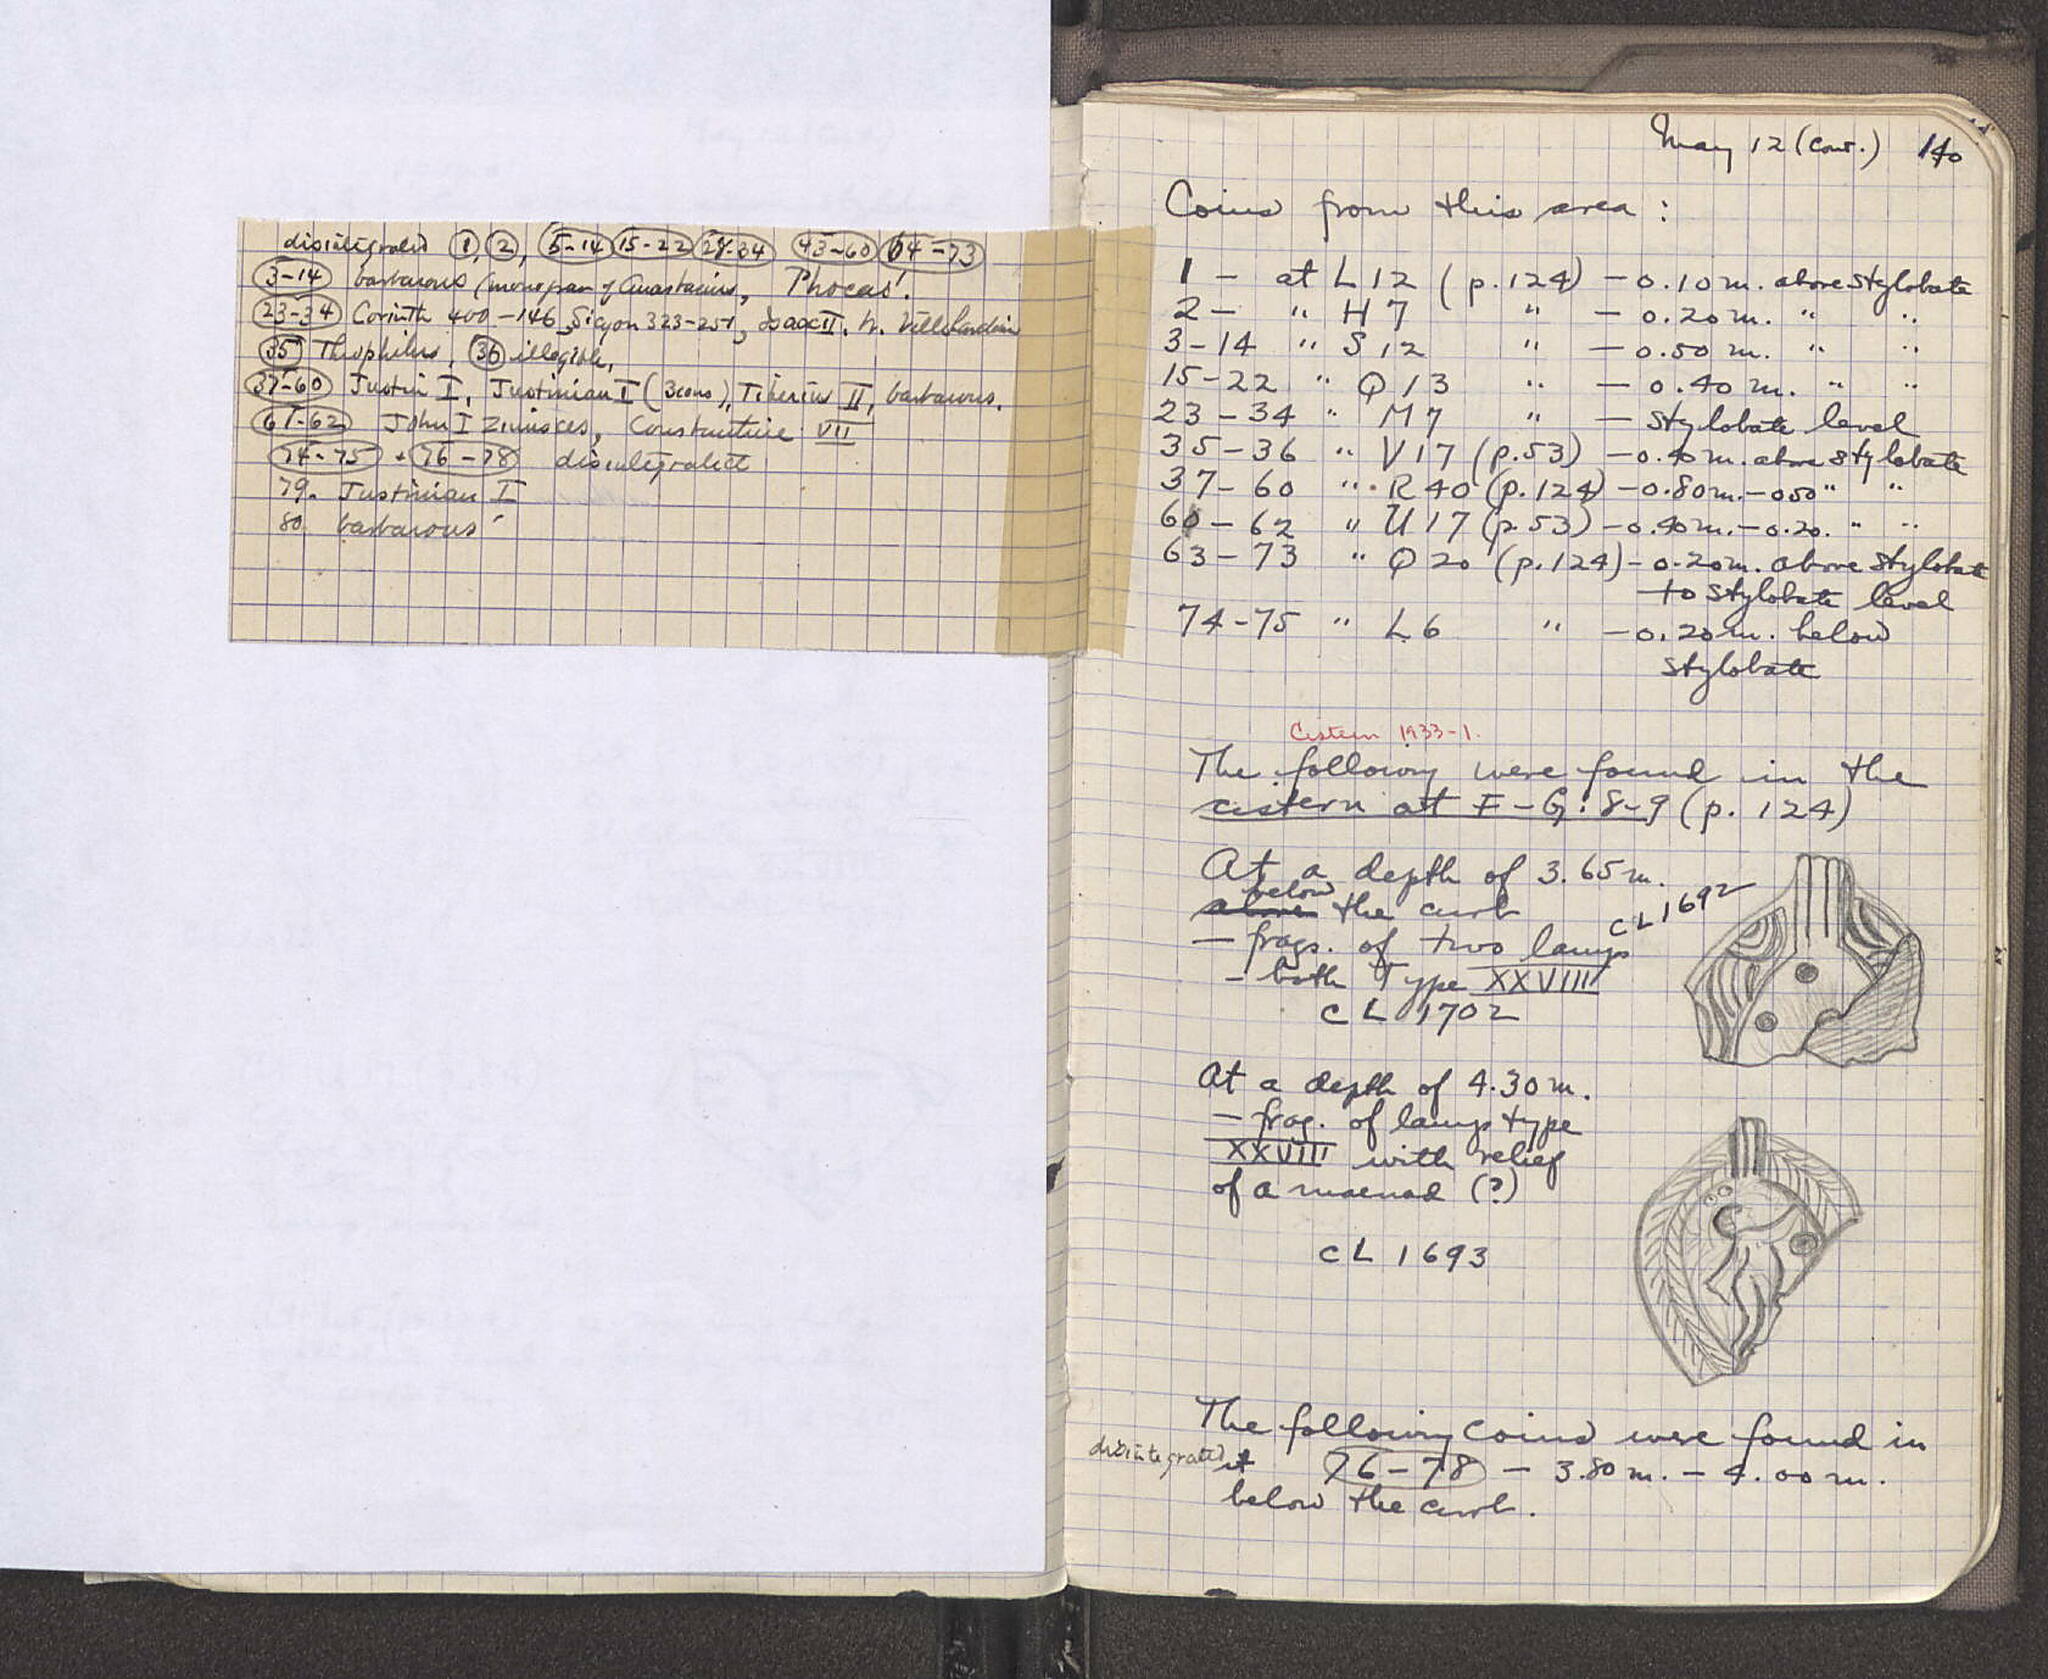 disintegrated 1, 2, 5-14 15-22 28-34 43-60 64-73
3-14 barbarous (monogram of Anastasius, Phocas!
23-34 Corinth 400-146, Sicyon 323-251, Isaac II, W. Villehardouin
35 Theophilus, 36 illegible,
37-60 Justin I, Justinian I (3 coins), Tiberius II, barbarous.
61-62 John I Zimisces, Constantine VII
74-75 + 76-78 disintegrated
79. Justinian I
80. barbarous
May 12 (cont.) 140
Coins from this area:
1 - at L 12 (p.124) - 0.10 m. above stylobate
2 - " H 7 " - 0.20 m. " "
3-14 " S 12 " - 0.50 m. " "
15-22 " Q 13 " - 0.40 m. " "
23-34 " M 7 " - stylobate level
35-36 " V 17 (p.53) - 0.40 m. above stylobate
37-60 " R 40 (p.124) - 0.80 m. - 0.50 " "
60-62 " U 17 (p.53) - 0.40 m. - 0.20. " "
63-73 " Q 20 (p.124) - 0.20 m. above stylobate
to stylobate level
74-75 " L 6 " - 0.20 m. below
stylobate
Cistern 1933-1.
The following were found in the
cistern at F-G: 8-9 (p. 124)
At a depth of 3.65 m.
below
above the curb
CL 1692
- frags. of two lamps
- both Type XXVIII
CL 1702
At a depth of 4.30 m.
- frag. of lamp type
XXVIII with relief
of a maenad (?)
CL 1693
The following coins were found in
disintegrated it 76-78 - 3.80 m. - 4.00 m.
below the curb.